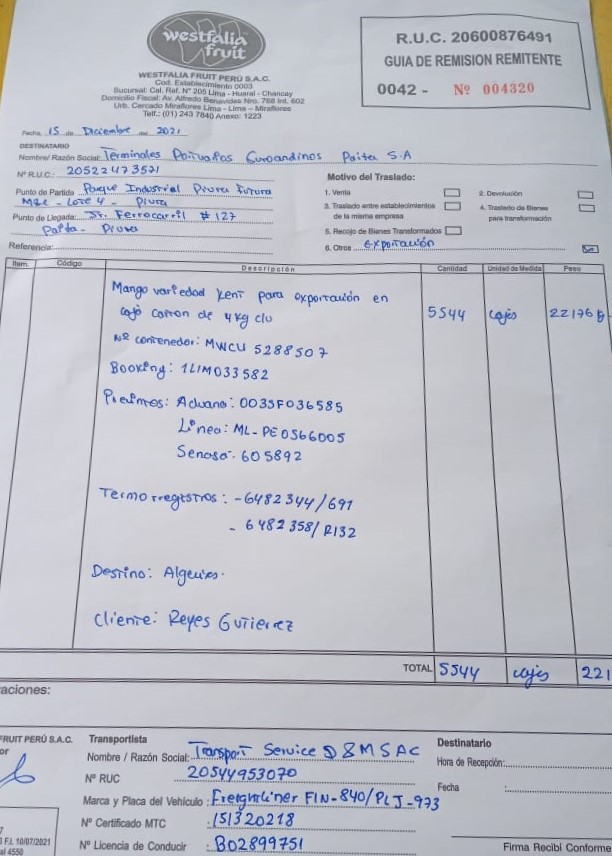 westfalia
fruit
WESTFALIA FRUIT PERÚ S.A.C.
Cod. Establecimiento 0003
Sucursal: Cal. Ref. N° 205 Lima - Huaral - Chancay
Domicilio Fiscal: Av. Alfredo Benavides Nro. 768 Int. 602
Urb. Cercado Miraflores Lima - Lima - Miraflores
Telf.: (01) 243 7840 Anexo: 1223
R.U.C. 20600876491
GUIA DE REMISION REMITENTE
0042 - Nº 004320
Fecha, 15 de Diciembre del 2021
DESTINATARIO
Nombre/ Razón Social: Terminales Portuarios Euroandinos Paita S.A
N° R.U.C.: 20522473571
Punto de Partida Parque Industrial Piura Futura
Mz2 - Lote 4 - Piura
Punto de Llegada: Jr. Ferrocarril # 127
Paita - Piura
Referencia:
Motivo del Traslado:
1. Venta
2. Devolución
3. Traslado entre establecimientos
de la misma empresa
4. Traslado de Bienes
para transformación
5. Recojo de Bienes Transformados
6. Otros exportación
Item. Código Descripción Cantidad Unidad de Medida Peso
Mango variedad Kent para exportación en
caja carton de 4kg c/u 5544 cajas 22176
Nº contenedor: MWCU 5288507
Booking: 1LIM033582
Precintos: Aduana: 003SF036585
Linea: ML-PE0566005
Senasa: 605892
Termorregistros: - 6482344/691
- 6482358/R132
Destino: Algeciras.
Cliente: Reyes Gutierrez
TOTAL 5544 cajas 221
aciones:
FRUIT PERÚ S.A.C.
or
F.I. 10/07/2021
al 4550
Transportista
Nombre / Razón Social: Transport Service D&M SAC
N° RUC : 20544953070
Marca y Placa del Vehículo : Freightliner FIN-840/PLJ-973
N° Certificado MTC : 151320218
N° Licencia de Conducir : B02899751
Destinatario
Hora de Recepción:
Fecha :
Firma Recibi Conforme